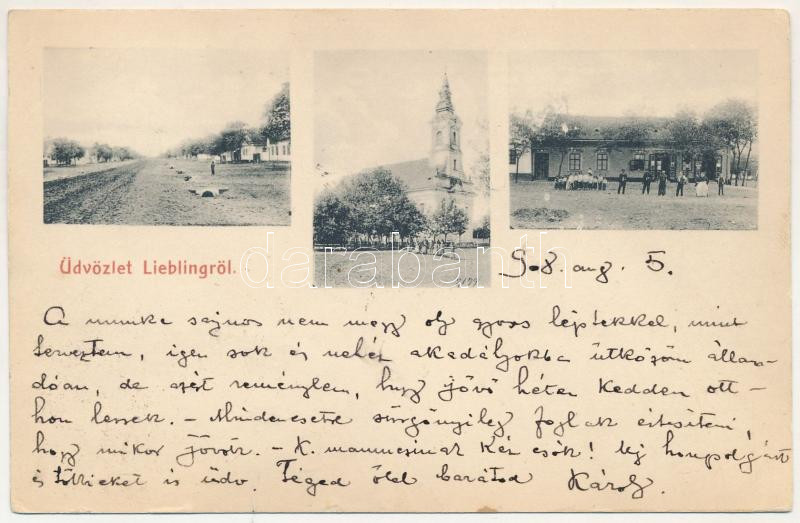 Üdvözlet Lieblingröl.
908. aug. 5.
A munka sajnos nem megy oly gyors léptekkel, mint
terveztem, igen sok és nehéz akadályokba ütközöm állan-
dóan, de azért reménylem, hogy jövő héten kedden ott-
hon leszek. – Mindenesetre sürgönyileg foglak értesíteni,
hogy mikor jövök. – K. mamuczinak kéz csók!
és is üdv. Téged ölel barátod Károly.
darabanth